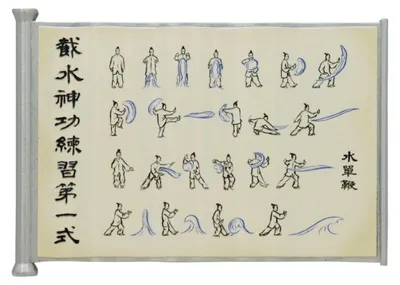 水單鞭
截水神功練習第一式